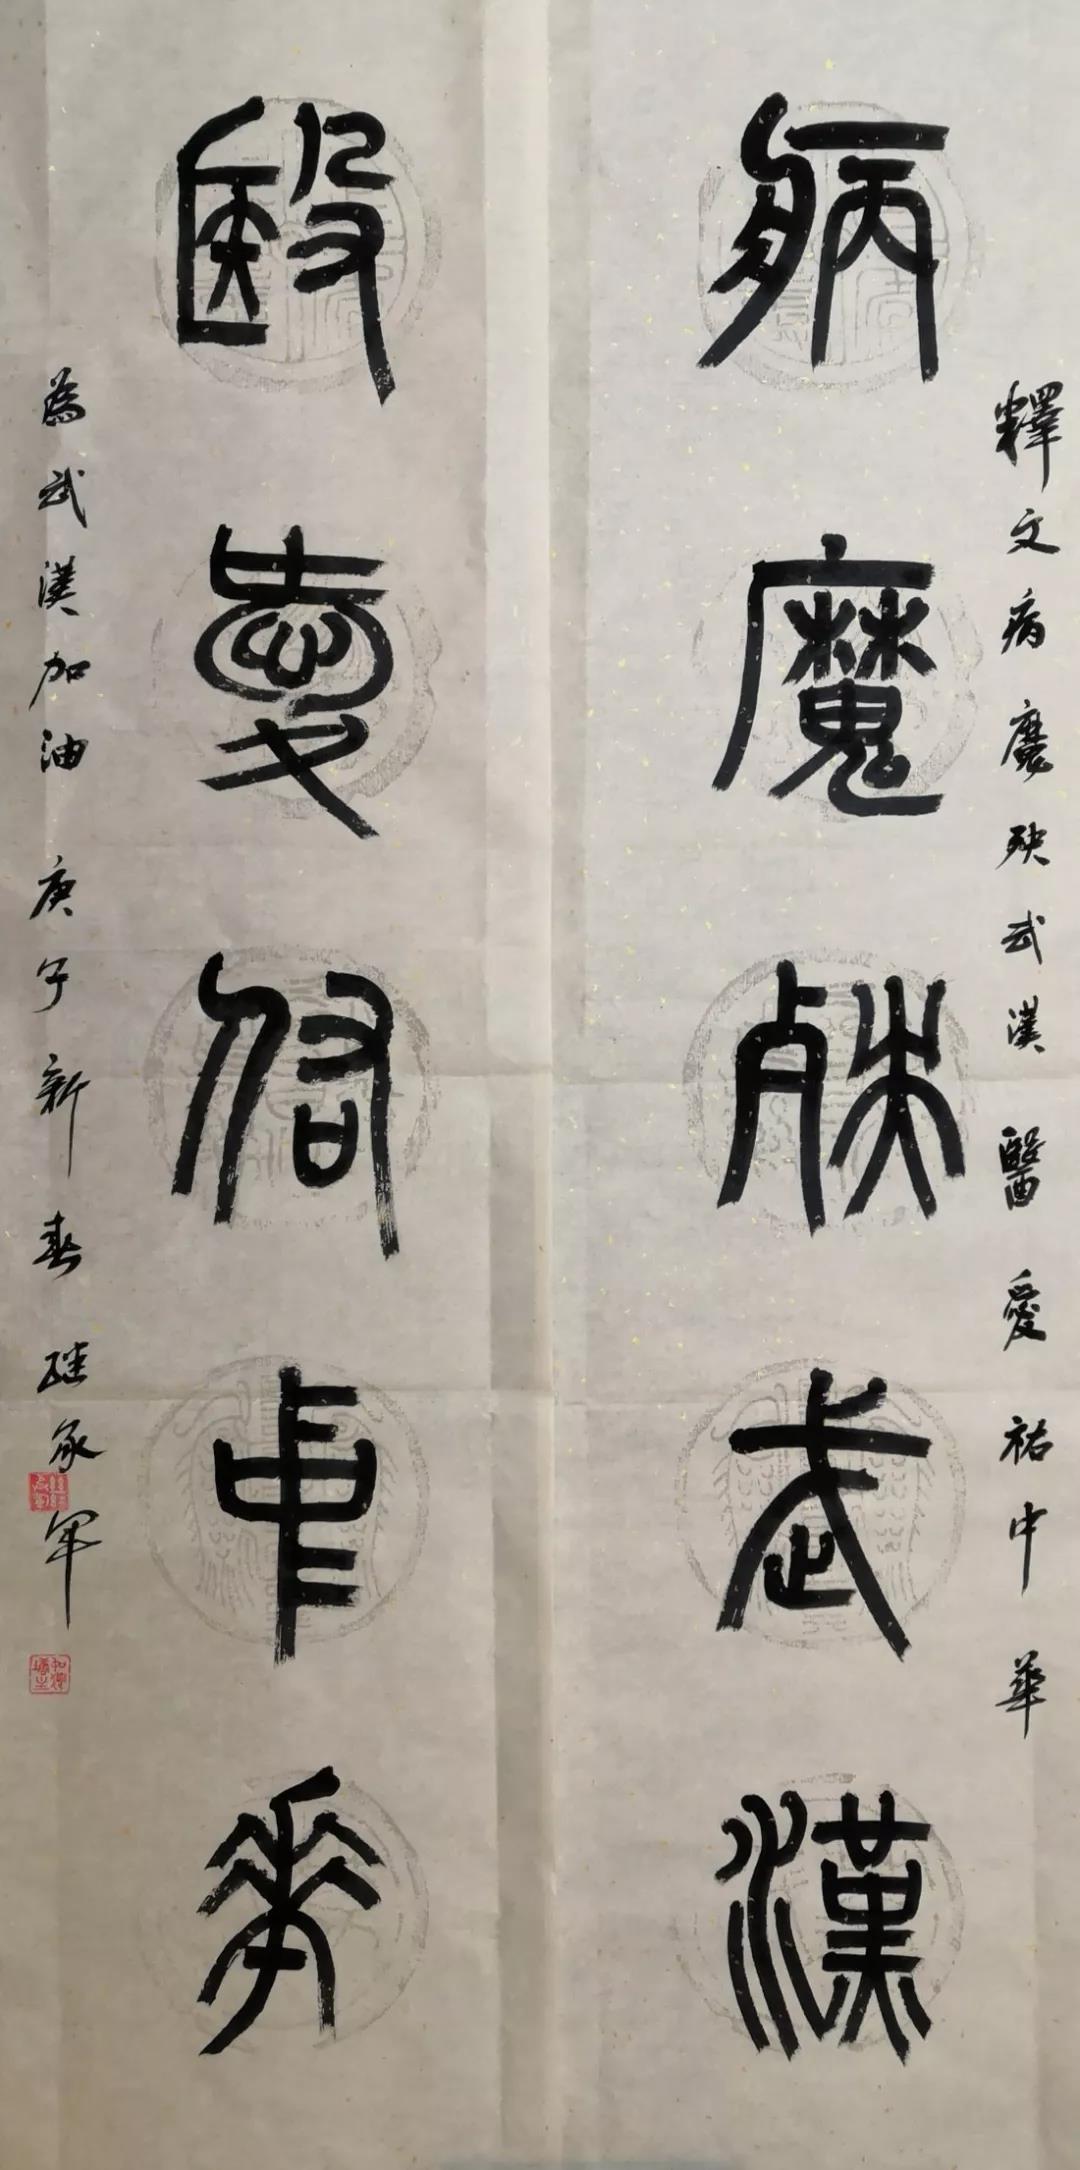 釋文病魔殃武漢醫愛祐中華
病魔殃武漢
醫愛佑中華
為武漢加油 庚子新春 继承军